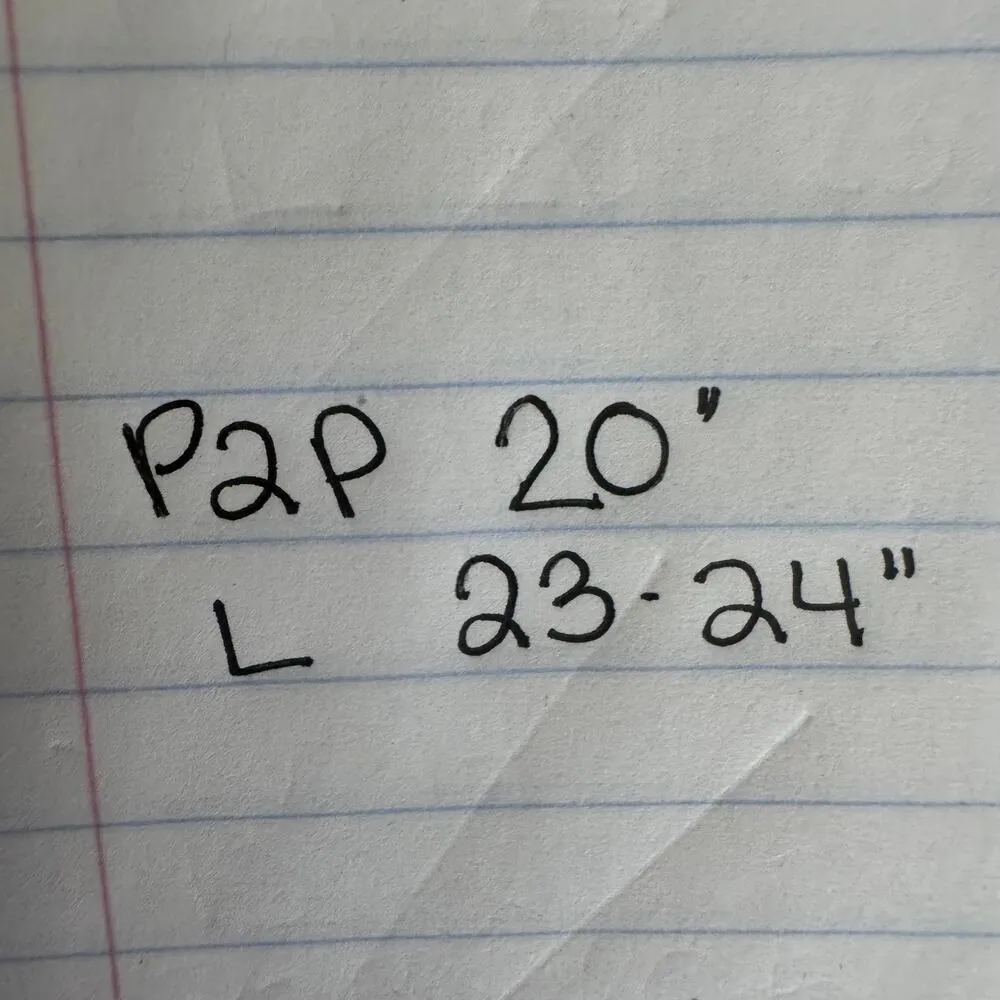 P2P 20"
L 23-24"